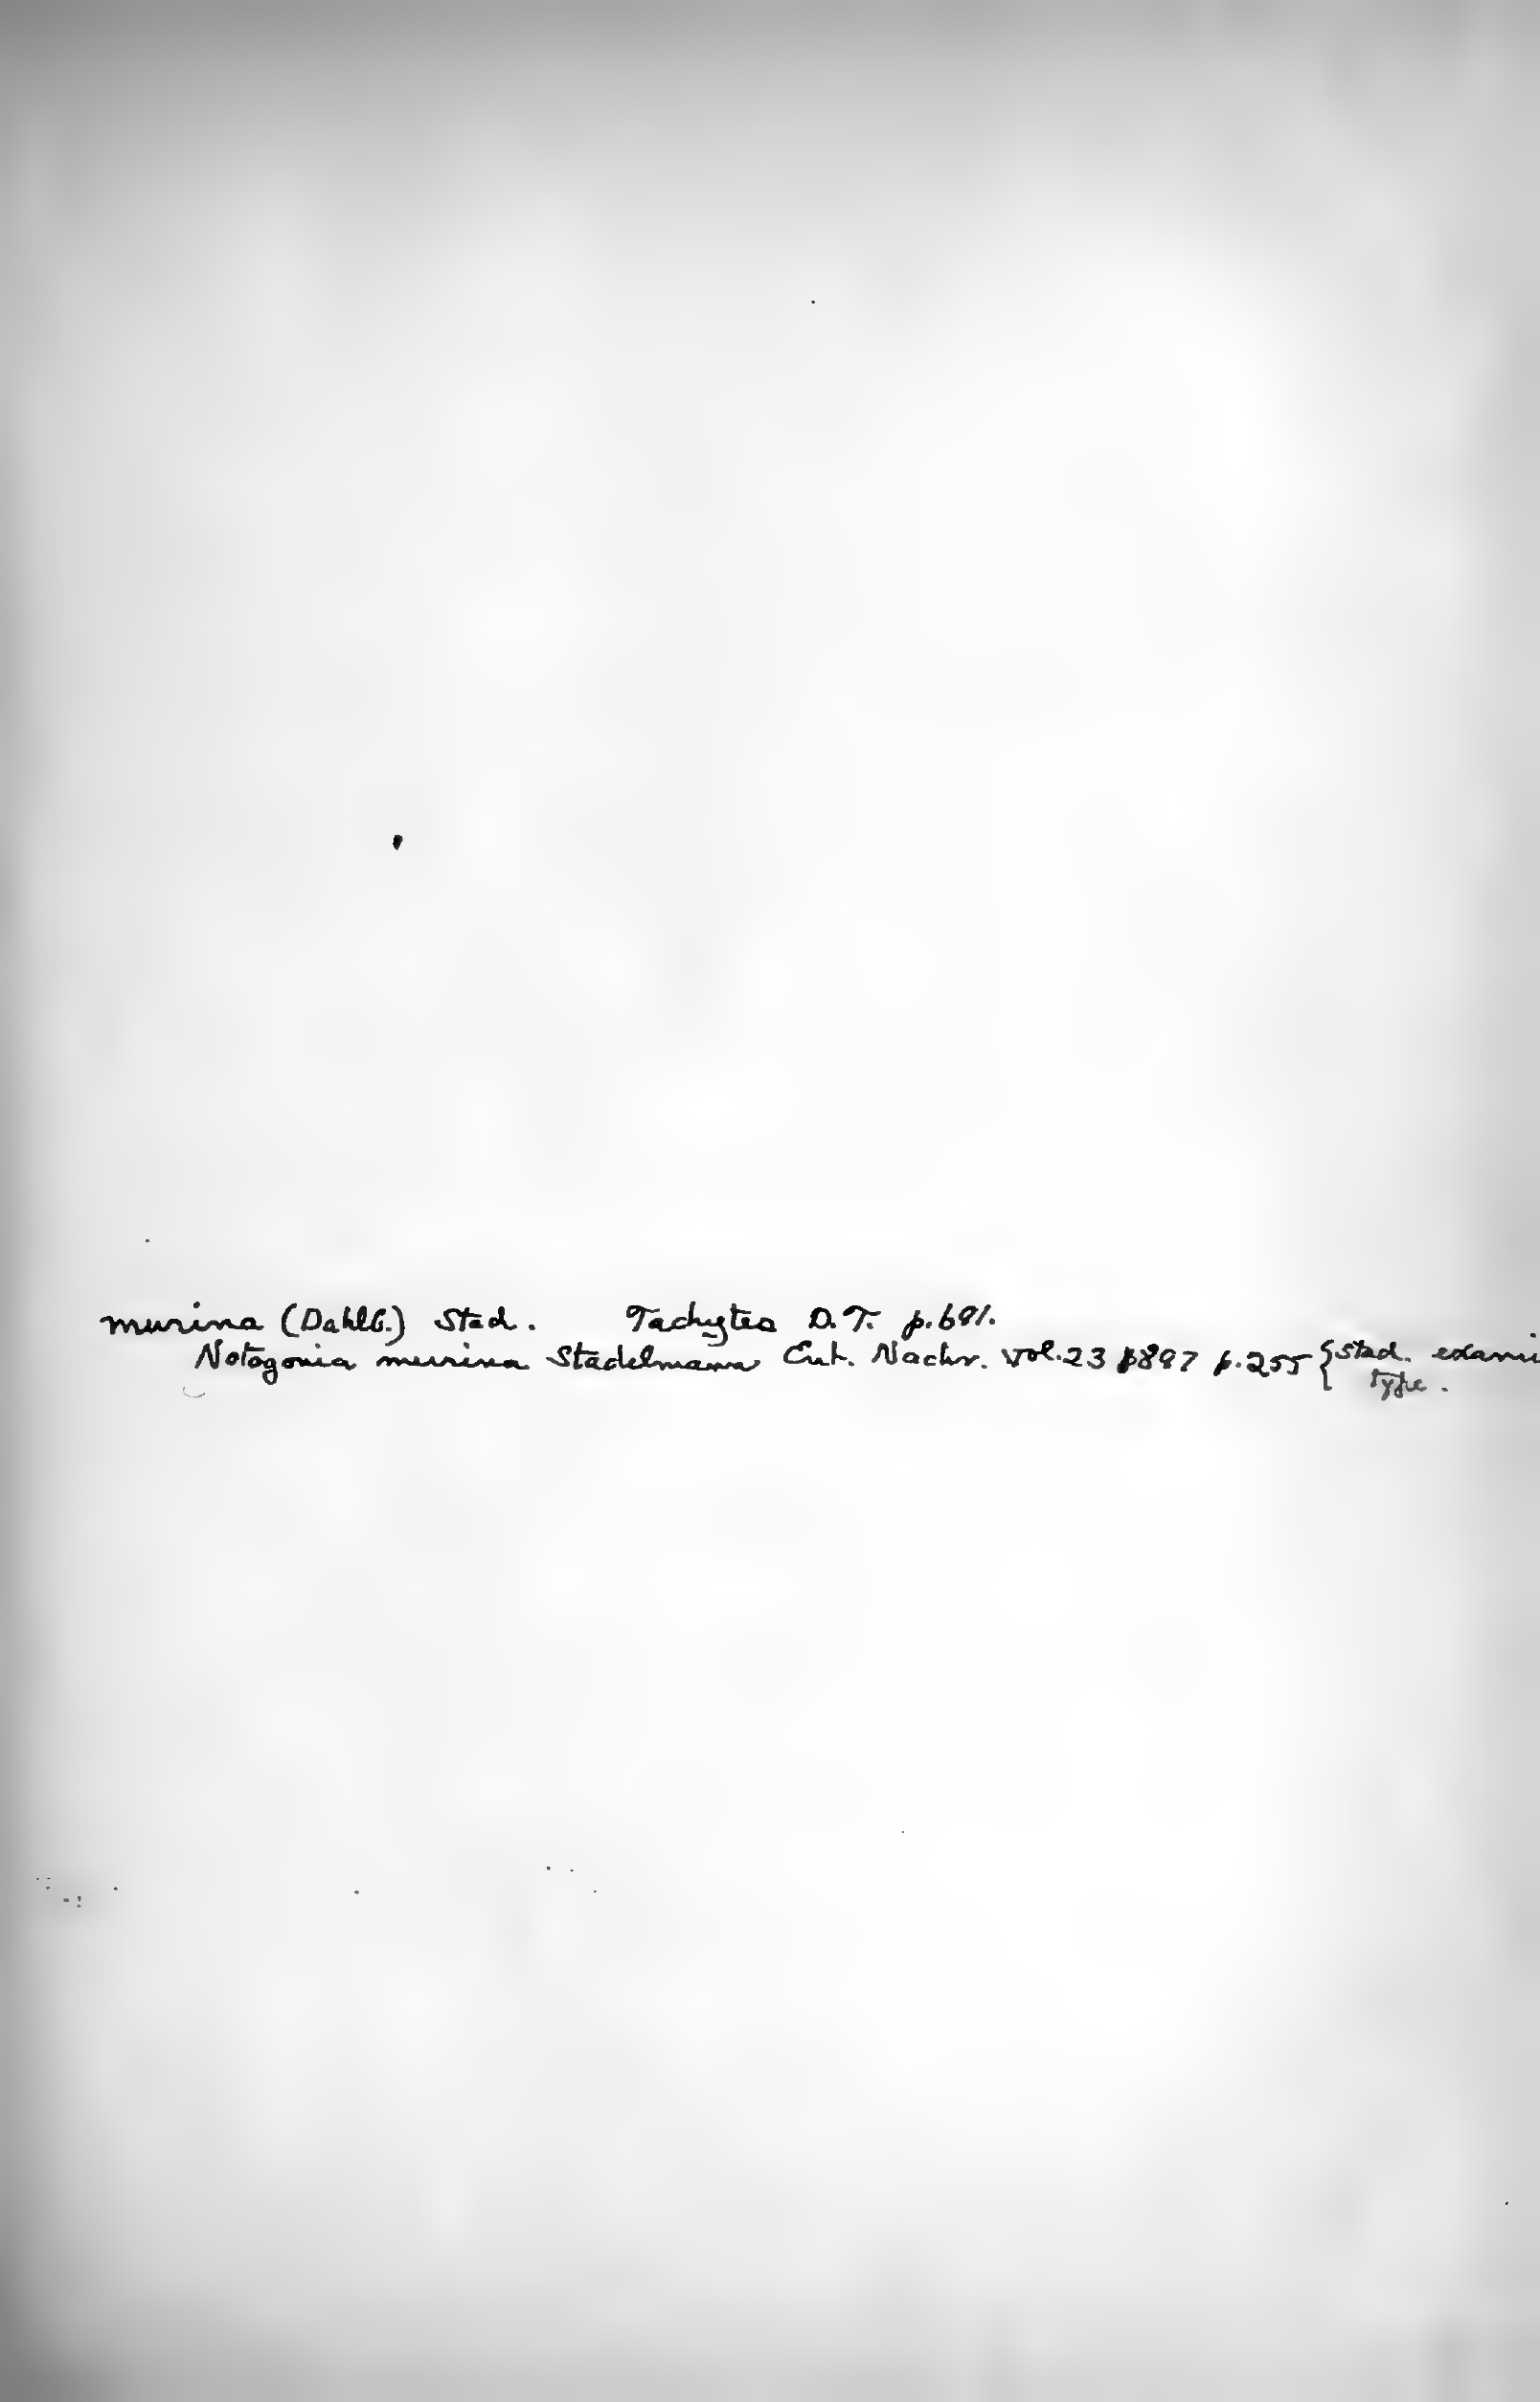 murina (Dahlb.) Stad. Tachytes D.T. p. 691.
Notogonia murina Stadelmann Ent. Nachr. vol. 23 1897 p. 255 { Stad. exami
type.